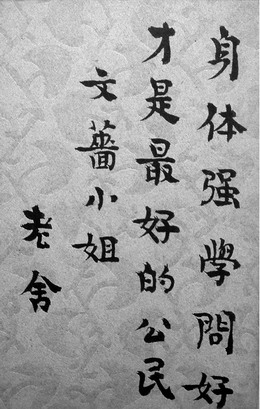 身体强學問好
才是最好的公民
文蔷小姐
老舍